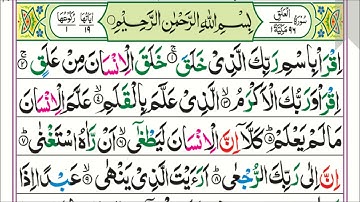 سُوْرَةُ الْعَلَقِ مَكِّيَّةٌ ٩٦ ١ بِسْمِ اللّٰهِ الرَّحْمٰنِ الرَّحِيْمِ اٰيَاتُهَا ١٩ رُكُوْعُهَا ١
اِقْرَاْ بِاسْمِ رَبِّكَ الَّذِىْ خَلَقَ ۚ‏ ١ خَلَقَ الْاِنْسَانَ مِنْ عَلَقٍ ۚ‏ ٢
اِقْرَاْ وَرَبُّكَ الْاَكْرَمُ ۙ‏ ٣ الَّذِىْ عَلَّمَ بِالْقَلَمِ ۙ‏ ٤ عَلَّمَ الْاِنْسَانَ
مَا لَمْ يَعْلَمْ ؕ‏ ٥ كَلَّاۤ اِنَّ الْاِنْسَانَ لَيَطْغٰٓى ۙ‏ ٦ اَنْ رَّاٰهُ اسْتَغْنٰى ؕ‏ ٧
اِنَّ اِلٰى رَبِّكَ الرُّجْعٰى ؕ‏ ٨ اَرَءَيْتَ الَّذِىْ يَنْهٰى ۙ‏ ٩ عَبْدًا اِذَا